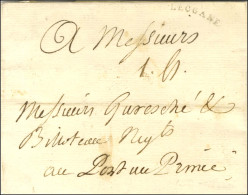 LEOGANE
A Messieurs
Messieurs Garesché &
Billoteau Negts
au Port au Prince